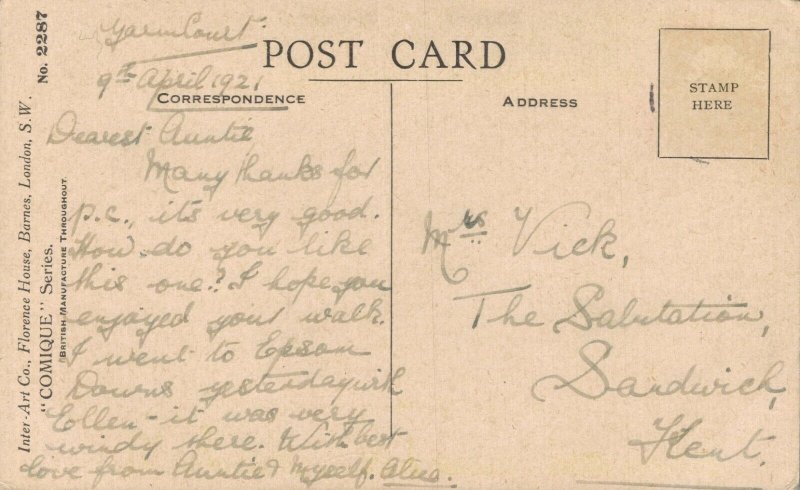 Inter-Art Co., Florence House, Barnes, London, S.W. No. 2287
"COMIQUE" Series.
BRITISH MANUFACTURE THROUGHOUT
POST CARD
CORRESPONDENCE
ADDRESS
STAMP
HERE
Court.
9th April 1921
Dearest Auntie
Many thanks for
p.c., it's very good.
How do you like
this one? I hope you
enjoyed your walk.
I went to Epsom
Downs yesterday with
- it was very
windy there. With best
love from Auntie & Myself.
Mrs Vick,
The Salutation,
Sandwich,
Kent.